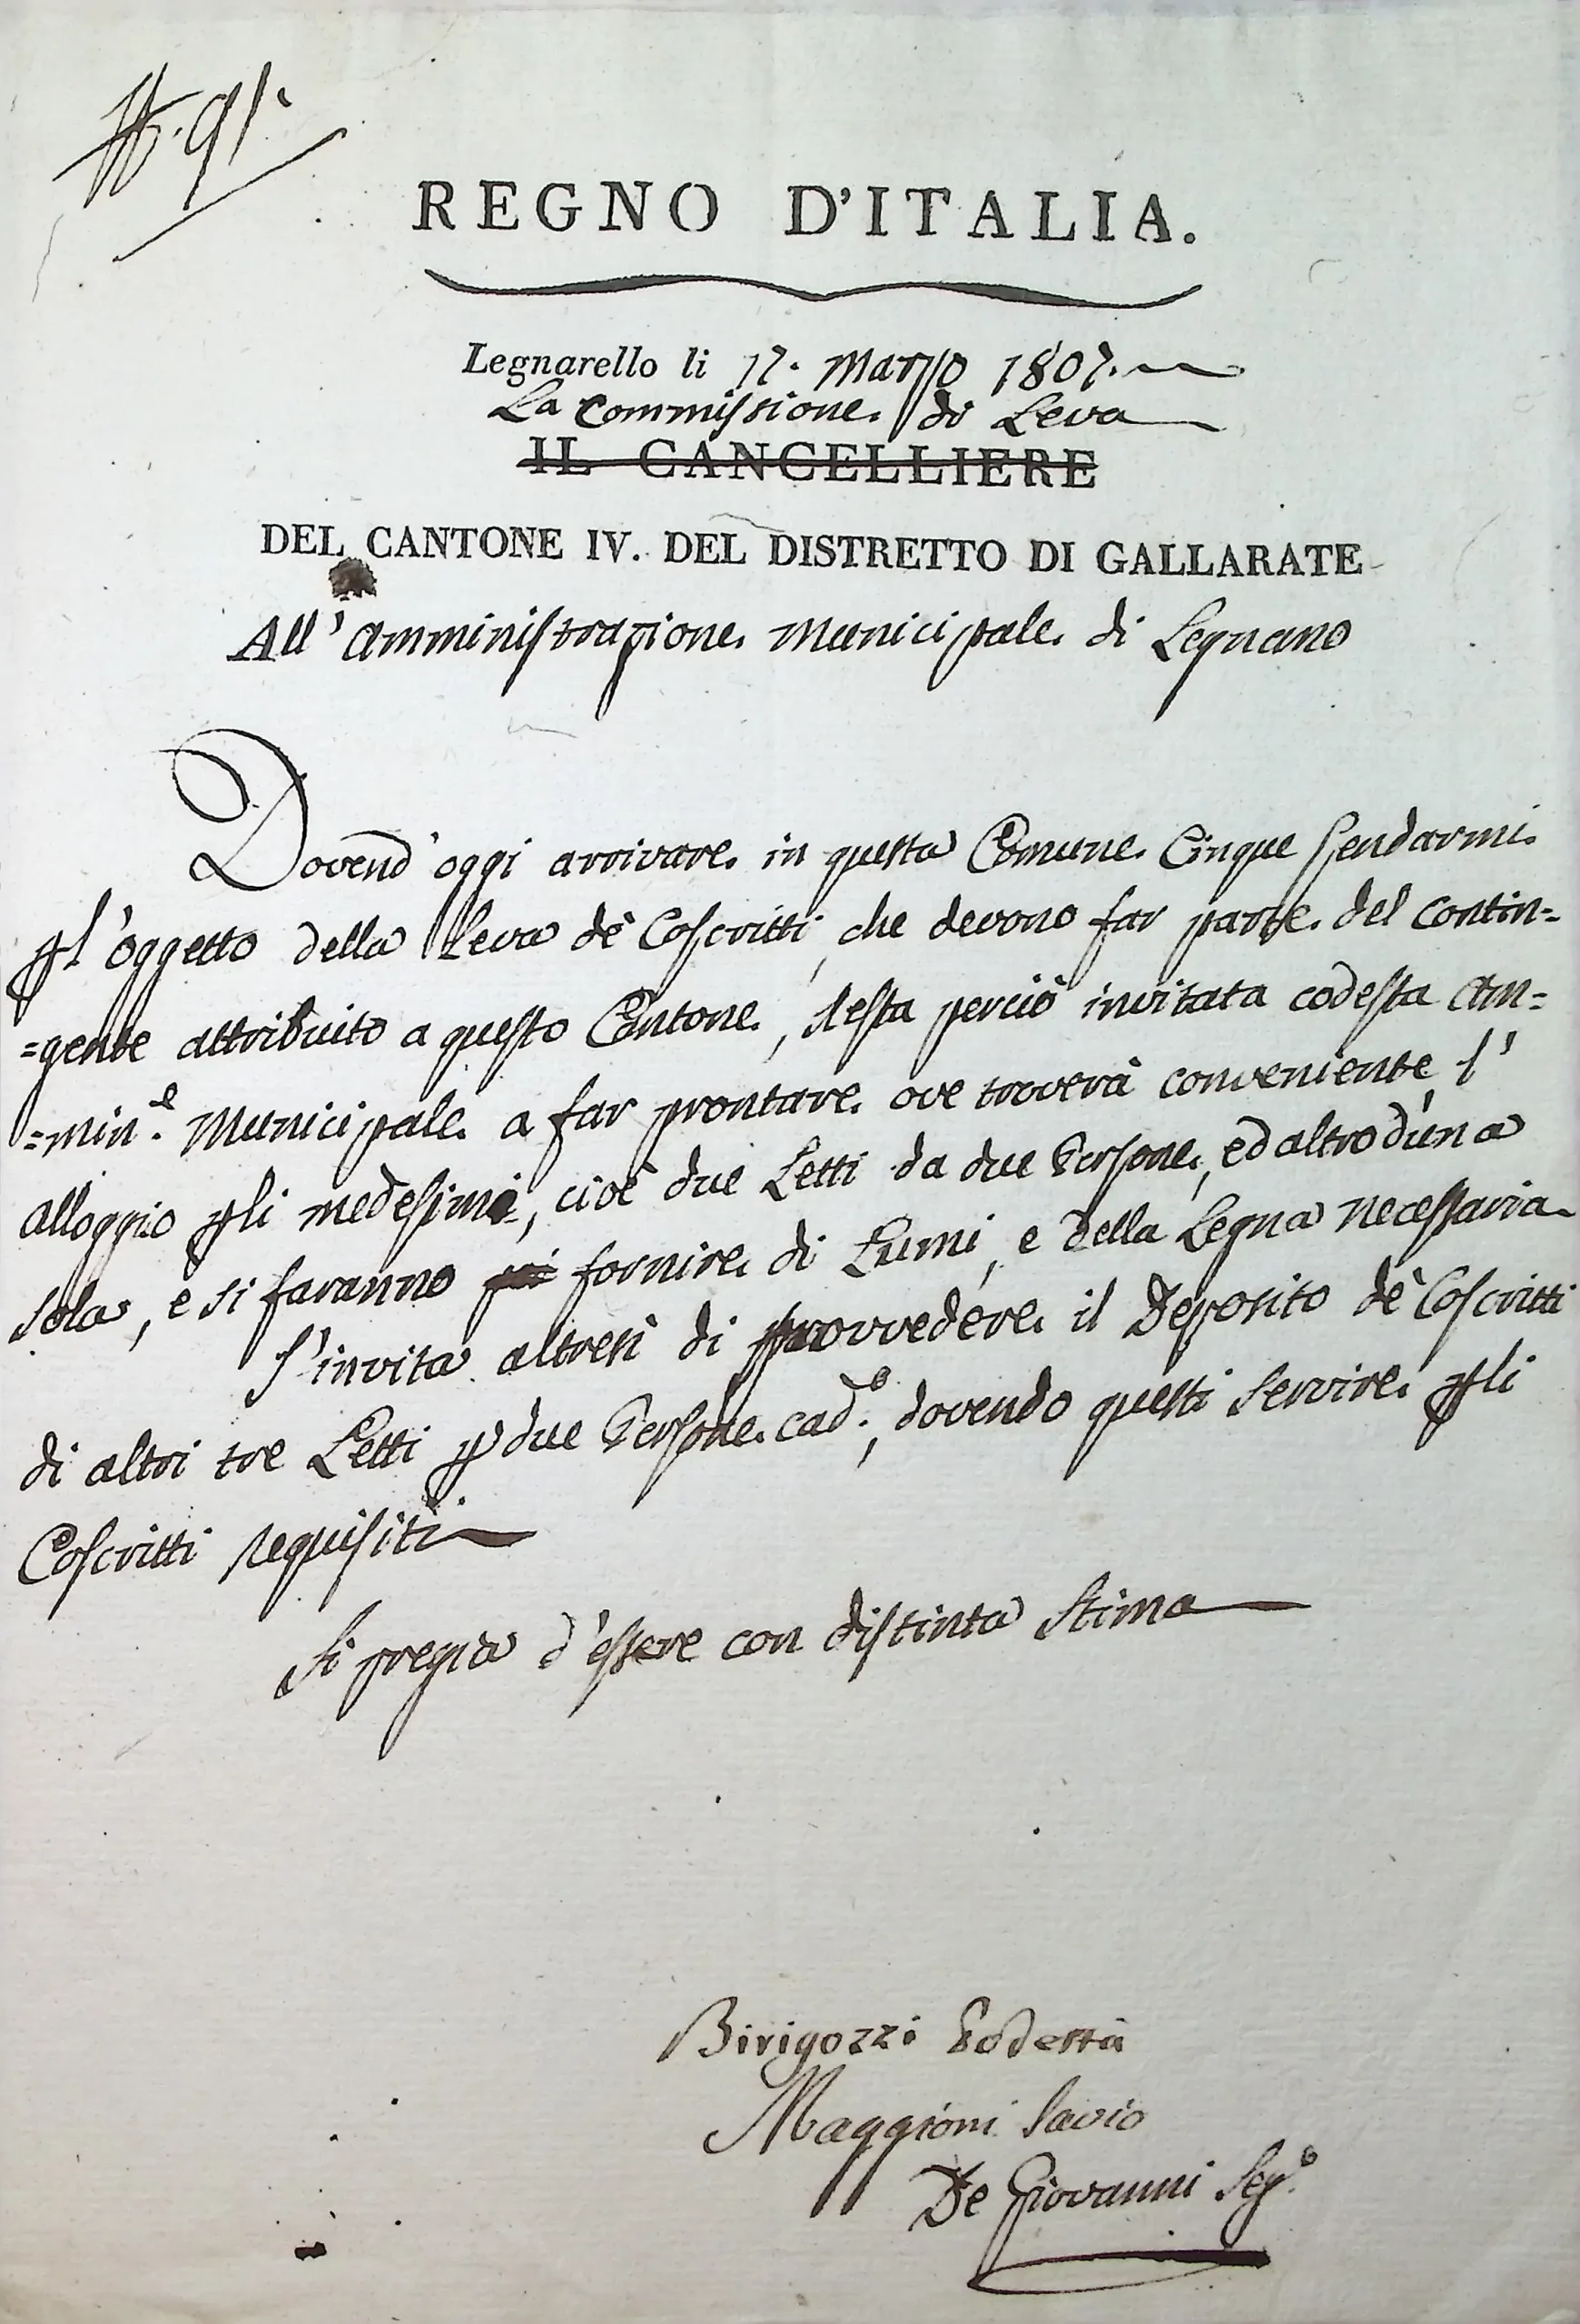 N. 91.
REGNO D'ITALIA.
Legnarello li 17. Marzo 1807.
La Commissione di Leva
IL CANCELLIERE
DEL CANTONE IV. DEL DISTRETTO DI GALLARATE
All' Amministrazione Municipale di Legnano
Dovend' oggi arrivare in questa Comune Cinque Gendarmi
p l'oggetto della Leva de' Coscritti, che devono far parte del contin=
=gente attribuito a questo Cantone, resta perciò invitata codesta Am=
=min.e Municipale a far prontare ove troverà conveniente l'
alloggio p li medesimi, cioè due Letti da due Persone, ed altro d'una
sola, e si faranno fornire di Lumi, e della Legna necessaria
S'invita altresì di provvedere il Deposito de' Coscritti
di altri tre Letti p due Persone cad.e, dovendo questi servire p li
Coscritti requisiti
Si pregia d'essere con distinta stima
Birigozzi Podestà
Maggioni Savio
De Giovanni Seg.o